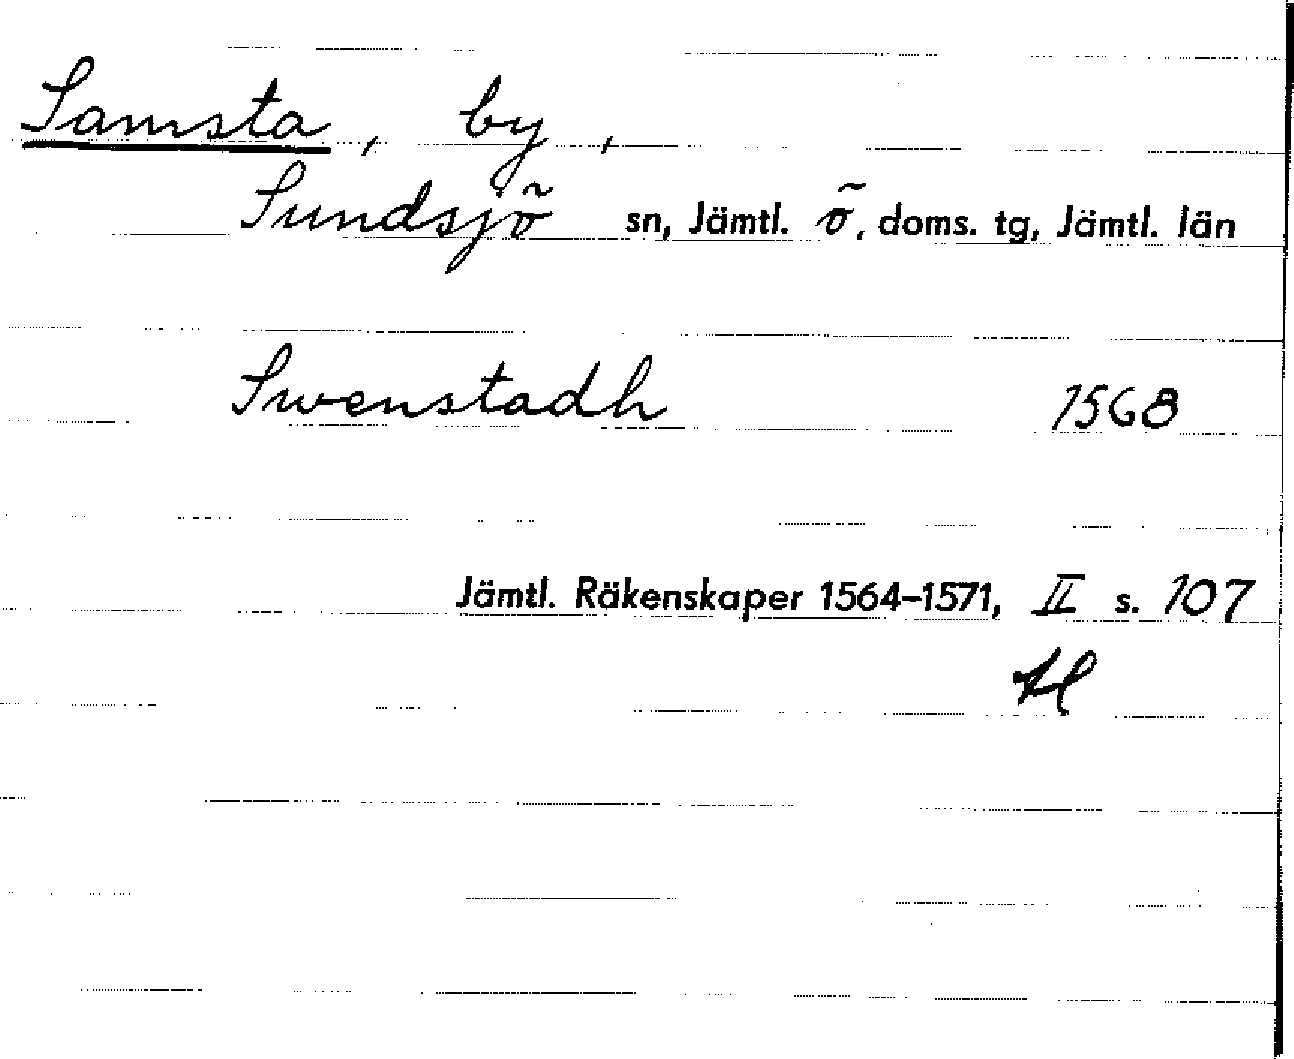 Samsta, by,
Sundsjö sn, Jämtl. ö, doms. tg, Jämtl. län
Swenstadh 1568
Jämtl. Räkenskaper 1564-1571, II s. 107